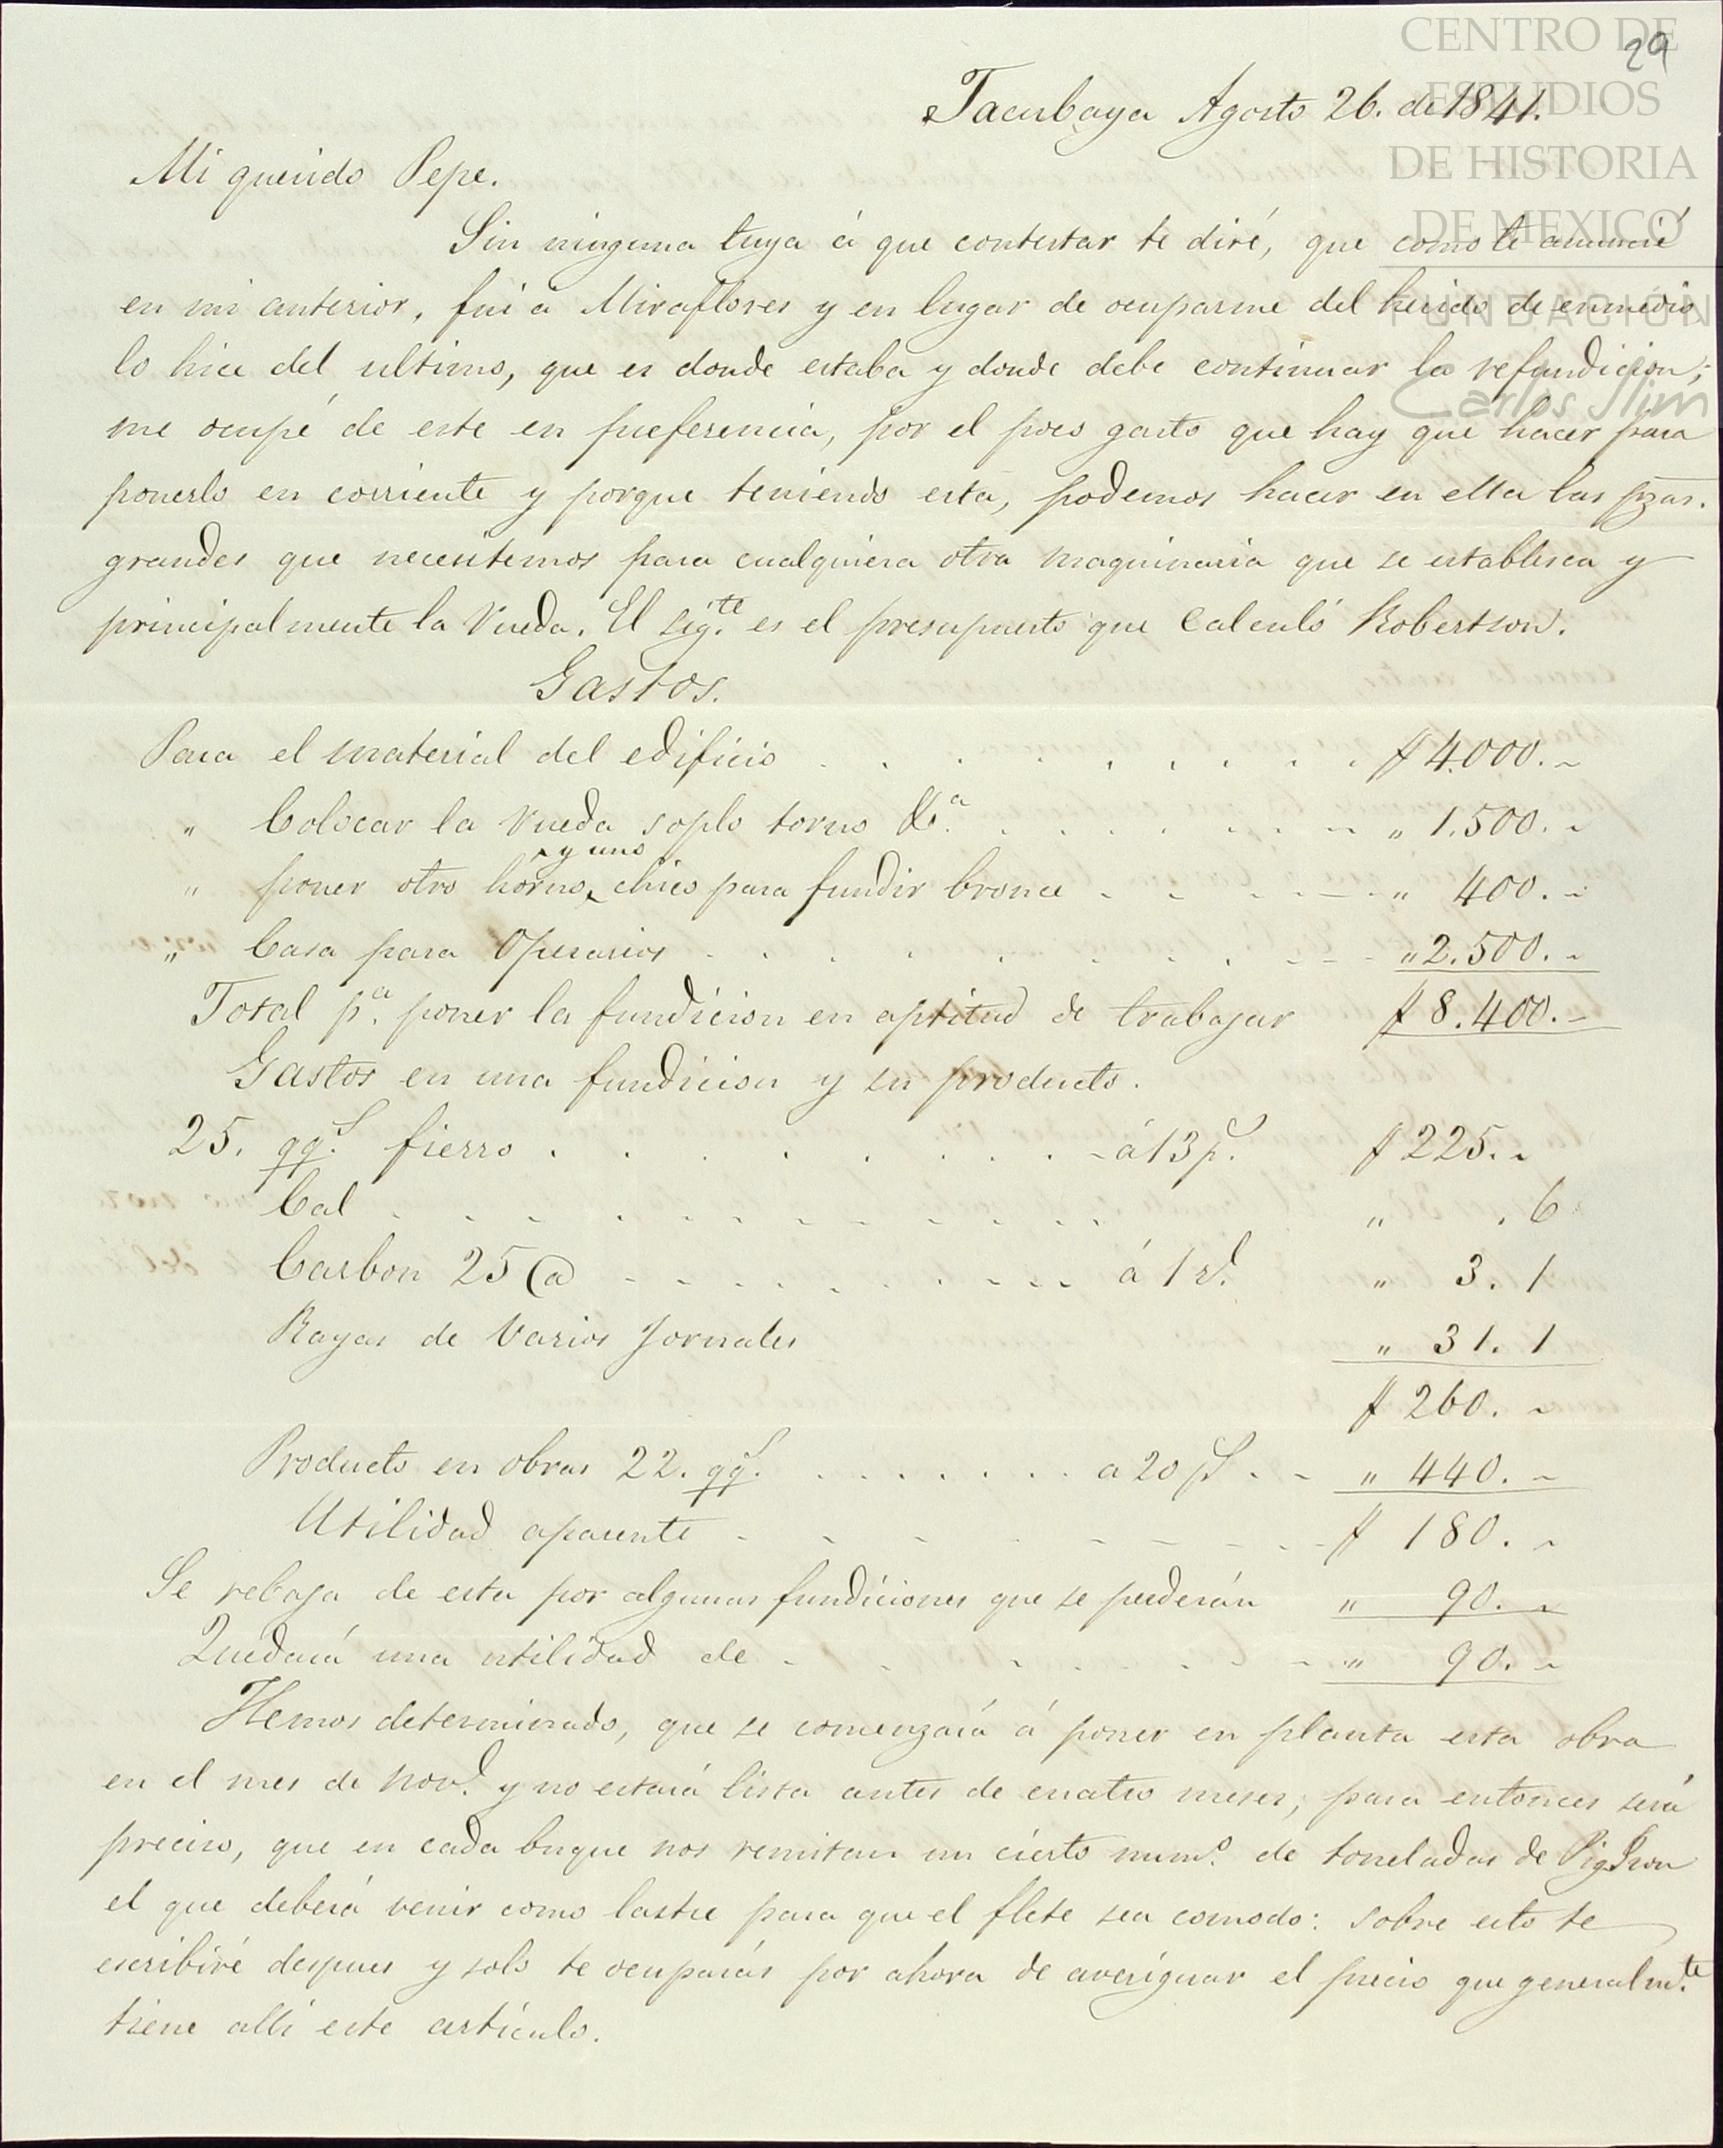 CENTRO DE
ESTUDIOS
DE HISTORIA
DE MEXICO
FUNDACIÓN
Carlos Slim
29
Tacubaya Agosto 26. de 1841.
Mi querido Pepe.
Sin ninguna tuya á que contestar te diré, que como te anuncié
en mi anterior, fui a Miraflores y en lugar de ocuparme del herido de enmedio
lo hice del ultimo, que es donde estaba y donde debe continuar la refundicion;
me ocupé de este en preferencia, por el poco gasto que hay que hacer para
ponerlo en corriente y porque teniendo esta, podemos hacer en ella las pzas.
grandes que necesitemos para cualquiera otra maquinaria que se establesca y
principalmente la Rueda. El sig.te es el presupuesto que Calculó Robertson.
Gastos.
Para el material del edificio . . . . . . . . $ 4.000. "
" Colocar la Rueda soplo torno &.a . . . . . . " 1.500. "
" poner otro horno y uno chico para fundir bronce . . . . " 400. "
" Casa para Operarios . . . . . . . . " 2.500. "
Total p.a poner la fundicion en aptitud de trabajar $ 8.400. "
Gastos en una fundicion y su producto.
25. qq.s fierro . . . . . . . . á 13 p.s $ 225. "
Cal . . . . . . . . . . " . 6
Carbon 25 @ . . . . . . . . á 1 rl. " 3. 1
Rayas de Varios Jornales " 31. 1
$ 260. "
Producto en obras 22. qq.s . . . . . . a 20 ps . . " 440. "
Utilidad aparente . . . . . . . . $ 180. "
Se rebaja de esta por algunas fundiciones que se perderán " 90. "
Quedará una utilidad de . . . . . . . " 90. "
Hemos determinado, que se comenzará á poner en planta esta obra
en el mes de Nov.e y no estará lista antes de cuatro meses, para entonces será
preciso, que en cada buque nos remitan un cierto num.o de toneladas de Pig Iron
el que deberá venir como lastre para que el flete sea comodo: sobre esto te
escribiré despues y solo te ocuparás por ahora de averiguar el precio que generalm.te
tiene allí este artículo.